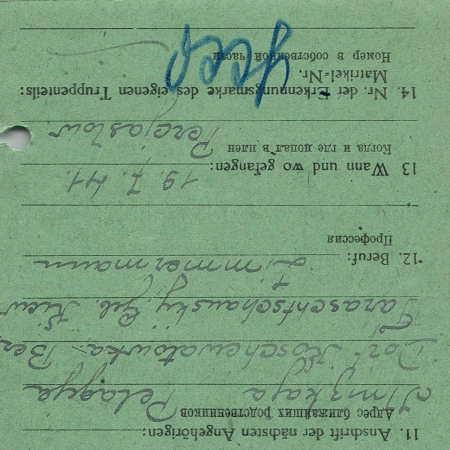 11. Anschrift der nächsten Angehörigen:
Адрес ближайших родственников
Pelagya
Dorf Koschewatowka Ber
Taraschtschansky, Geb. Kiew
12. Beruf: Zimmermann
Профессия
13 Wann und wo gefangen: 19.7.41.
Когда и где попал в плен Perejaslow.
14. Nr. der Erkennungsmarke des eigenen Truppenteils:
Matrikel-Nr.
Номер в собственной части